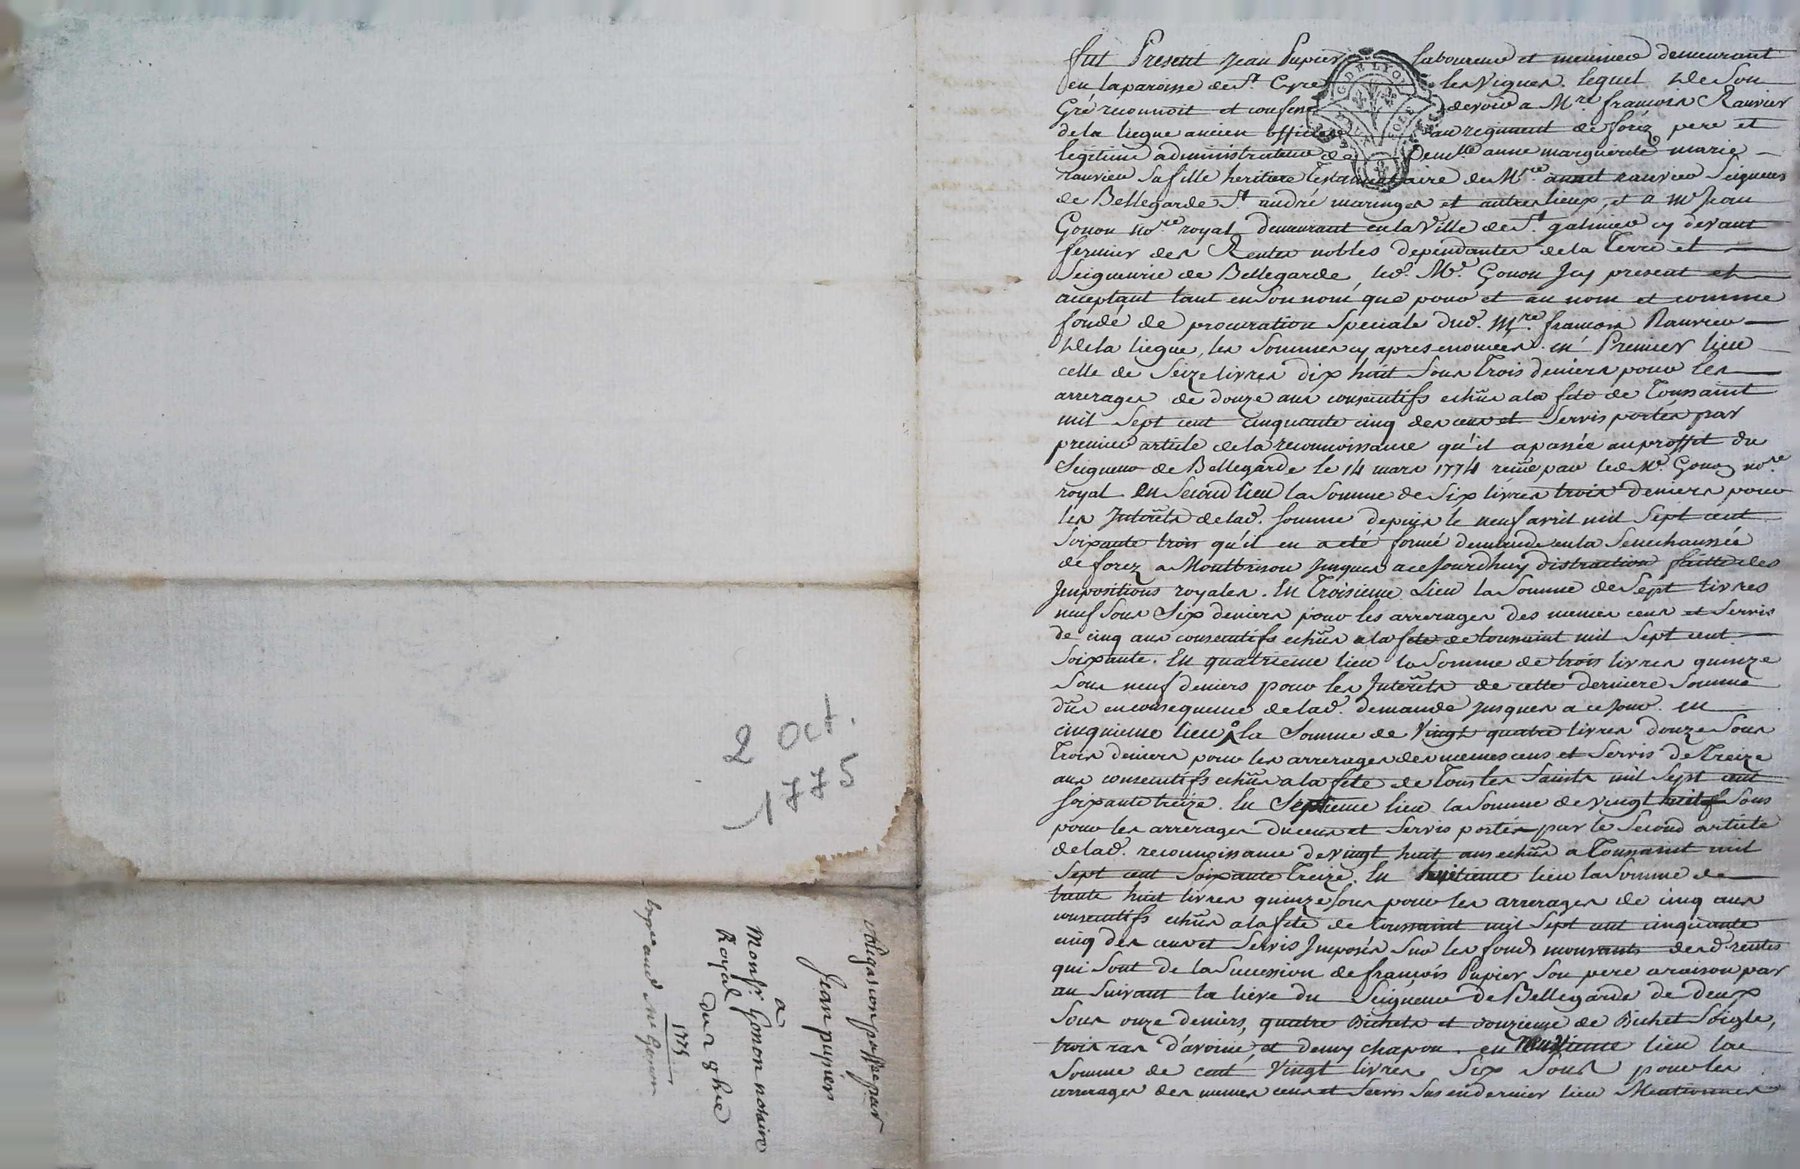 2 Oct.
1775
obligation passée par
Jean pupier
a
Monsr. Gonon notaire
Royal
du 2 8bre
1775
Expe
fut Present Jean Pupier laboureur et meunier demeurant
en la paroisse de St. Cyr les Vignes, lequel de Son
Gré reconnoit et confesse devoir a Mre. francois Ranvier
de la liegue ancien officier au regiment de forez pere et
legitime administrateur de Demlle anne marguerite marie
ranvier Sa fille heritiere testamentaire de Mre. ranvier Seigneur
de Bellegarde St. andré maringes et autres lieux, et a Me Jean
Gonon nore. royal demeurant en la Ville de St. galmier cy devant
fermier des Rentes nobles dependantes de la Terre et
Seigneurie de Bellegarde, led. Me. Gonon Icy present et
acceptant tant en Son nom que pour et au nom et comme
fondé de procuration Speciale dud. Mre. francois Ranvier
de la liegue, les Sommes cy apres enoncées. en Premier lieu
celle de Seize livres dix huit Sous Trois deniers pour les
arrerages de douze ans consecutifs echûs a la fete de Toussaint
mil Sept cent cinquante cinq des cens et Servis portés par
premier article de la reconnoissance qu'il a passée au proffit du
Seigneur de Bellegarde le 14 mars 1774 reçüe par led. Me. Gonon nore.
royal En Second lieu la Somme de Six livres trois deniers pour
les Interêts de lad. Somme depuis le neuf avril mil Sept cent
Soixante trois qu'il en a eté formé demande en la Senechaussée
de forez a Montbrison jusques a cejourdhuy distraction faitte des
Impositions royales. En Troisieme Lieu la Somme de Sept livres
neuf Sous Six deniers pour les arrerages des memes cens et Servis
de cinq ans consecutifs echûs a la fete de toussaint mil Sept cent
Soixante. En quatrieme lieu la Somme de trois livres quinze
Sous neuf deniers pour les Interêts de cette derniere Somme
dûs en consequence de lad. demande jusques a ce jour. en
cinquieme lieu la Somme de Vingt quatre livres douze Sous
Trois deniers pour les arrerages des memes cens et Servis de treize
ans consecutifs echûs a la fete de Tous les Saints mil Sept cent
soixante treize. En Septieme lieu la Somme de vingt huit Sous
pour les arrerages du cens et Servis portés par le Second article
de lad. reconnoissance de vingt huit ans echûs a Toussaint mil
Sept cent Soixante Treize. En huitieme lieu la Somme de
trente huit livres quinze Sous pour les arrerages de cinq ans
consecutifs echûs a la fete de Toussaint mil Sept cent cinquante
cinq des cens et Servis Imposés Sur les fonds mouvants desd. rentes
qui Sont de la Sucession de francois Pupier Son pere a raison par
an Suivant la lieve du Seigneur de Bellegarde de deux
Sous onze deniers, quatre Bichets et de Bichet Soigle,
trois ras d'avoine, et demy chapon. en neuvieme lieu la
Somme de cent Vingt livres Six Sous pour les
arrerages des memes cens et Servis en dernier lieu Mentionnés